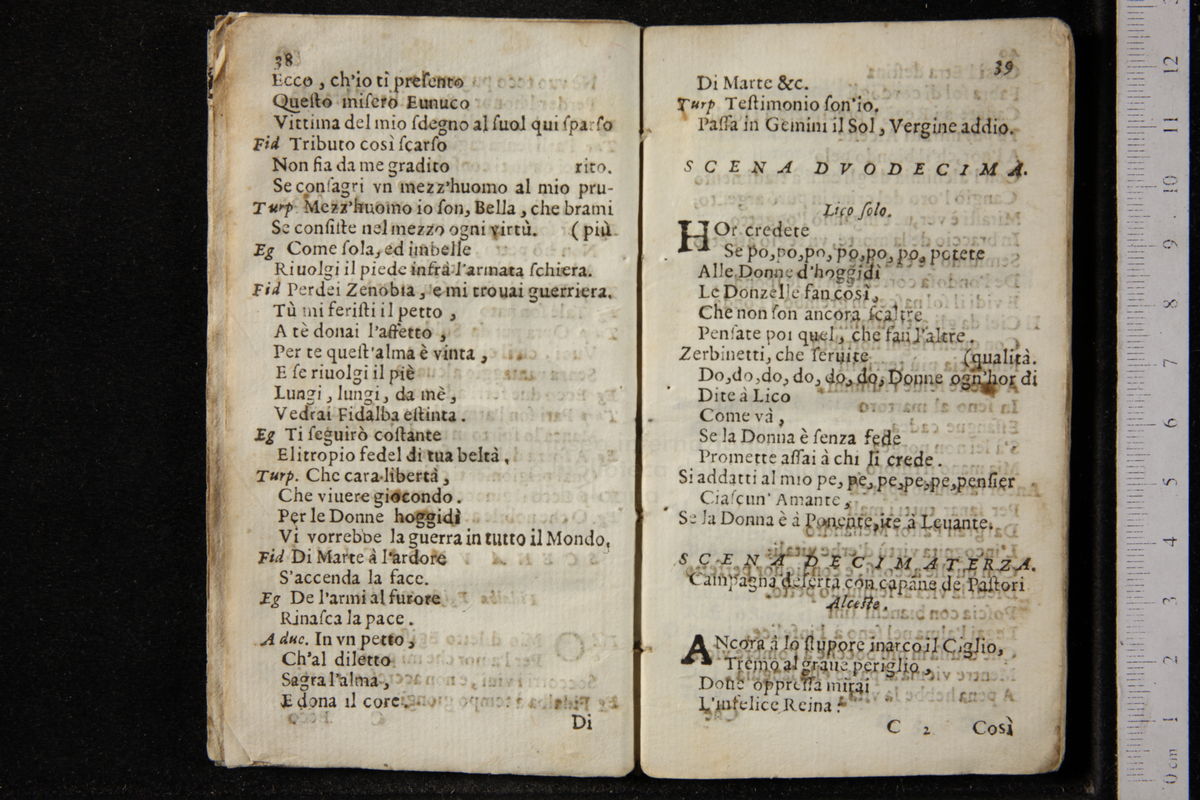 38
Ecco, ch'io ti presento
Questo misero Eunuco
Vittima del mio sdegno al suol qui sparso
Fid Tributo così scarso
Non fia da me gradito rito.
Se consagri vn mezz'huomo al mio pru-
Turp Mezz'huomo io son, Bella, che brami
Se consiste nel mezzo ogni virtù. (più
Eg Come sola, ed imbelle
Riuolgi il piede infrà l'armata schiera.
Fid Perdei Zenobia, e mi trouai guerriera.
Tù mi feristi il petto,
A tè donai l'affetto,
Per te quest'alma è vinta,
E se riuolgi il piè
Lungi, lungi, da mè,
Vedrai Fidalba estinta.
Eg Ti seguirò costante
Elitropio fedel di tua beltà,
Turp. Che cara libertà,
Che viuere giocondo.
Per le Donne hoggidì
Vi vorrebbe la guerra in tutto il Mondo,
Fid Di Marte à l'ardore
S'accenda la face.
Eg De l'armi al furore
Rinasca la pace.
A duc. In vn petto,
Ch'al diletto
Sagra l'alma,
E dona il core.
Di
39
Di Marte &c.
Turp Testimonio son'io.
Passa in Gemini il Sol, Vergine addio.
SCENA DVODECIMA.
Lico solo.
HOr credete
Se po, po, po, po, po, po, potete
Alle Donne d'hoggidì
Le Donzelle fan così,
Che non son ancora scaltre
Pensate poi quel, che fan l'altre.
Zerbinetti, che seruite (qualità.
Do, do, do, do, do, do, Donne ogn'hor di
Dite à Lico
Come và,
Se la Donna è senza fede
Promette assai à chi li crede.
Si addatti al mio pe, pe, pe, pe, pe, pensier
Ciascun' Amante,
Se la Donna è à Ponente, ite à Leuante.
SCENA DECIMATERZA.
Campagna deserta con capane de Pastori
Alceste.
ANcora à lo stupore inarco il Ciglio,
Tremo al graue periglio,
Doue oppressa mirai
L'infelice Reina:
C 2 Così